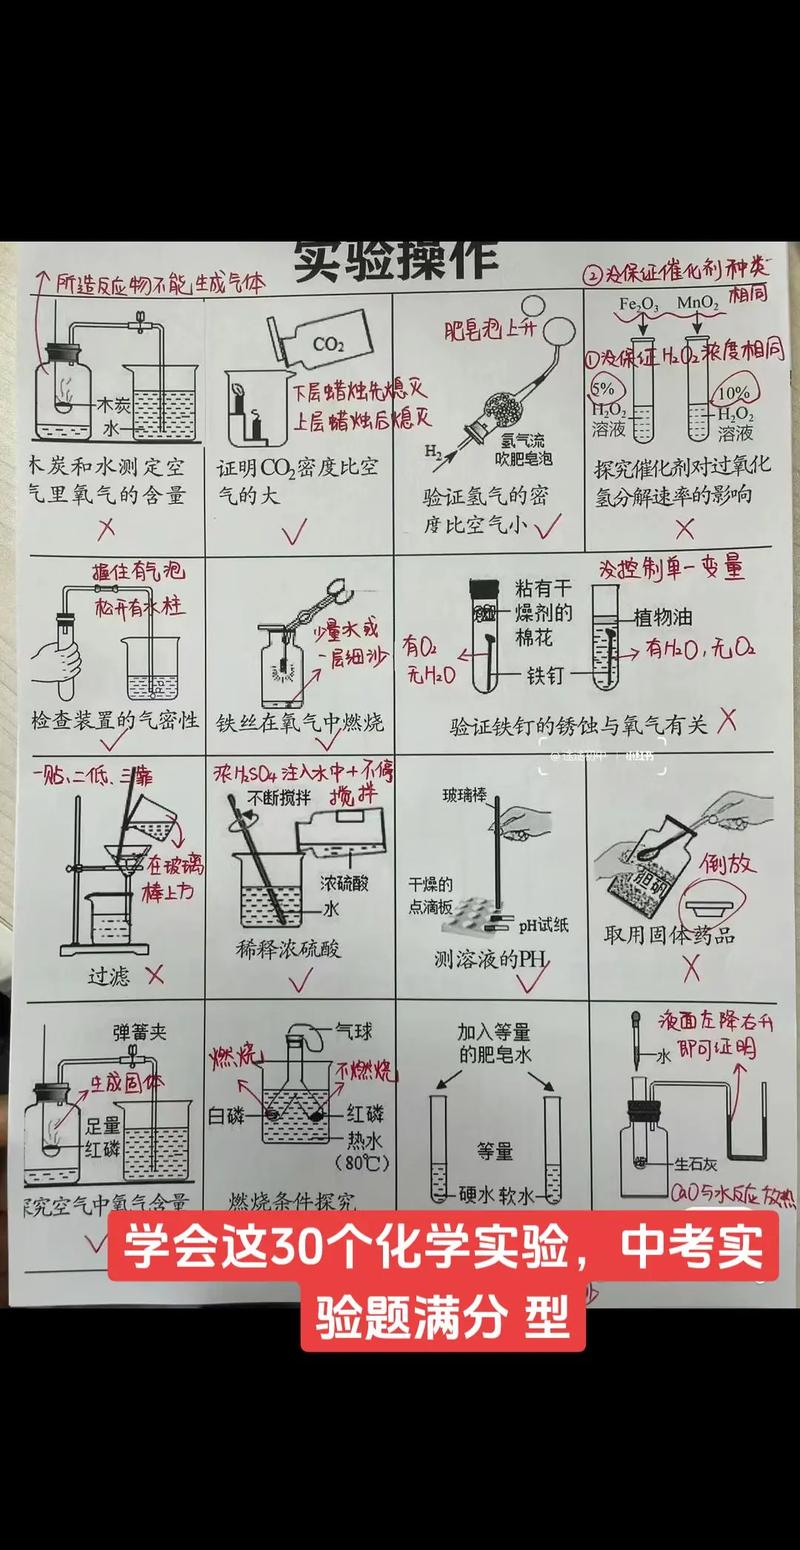 实验操作
所造反应物不能生成气体
②没保证催化剂种类
相同
木炭
水
木炭和水测定空
气里氧气的含量
×
CO₂
下层蜡烛先熄灭
上层蜡烛后熄灭
证明CO₂密度比空
气的大
✓
肥皂泡上升
H₂
氢气流
吹肥皂泡
验证氢气的密
度比空气小 ✓
Fe₂O₃ MnO₂
①没保证H₂O₂浓度相同
5%
H₂O₂
溶液
10%
H₂O₂
溶液
探究催化剂对过氧化
氢分解速率的影响
×
握住有气泡
松开有水柱
检查装置的气密性
✓
少量水或
一层细沙
铁丝在氧气中燃烧
✓
没控制单一变量
粘有干
燥剂的
棉花
植物油
有O₂
无H₂O
有H₂O,无O₂
铁钉
验证铁钉的锈蚀与氧气有关 ×
一贴、二低、三靠
在玻璃
棒上方
过滤 ×
浓H₂SO₄注入水中+不停
搅拌
不断搅拌
浓硫酸
水
稀释浓硫酸
✓
玻璃棒
干燥的
点滴板
pH试纸
测溶液的PH
✓
倒放
胆矾
取用固体药品
×
弹簧夹
生成固体
足量
红磷
探究空气中氧气含量
✓
气球
燃烧
不燃烧
白磷
红磷
热水
(80℃)
燃烧条件探究
加入等量
的肥皂水
等量
硬水 软水
液面左降右升
即可证明
水
生石灰
CaO与水反应放热
学会这30个化学实验，中考实
验题满分 型